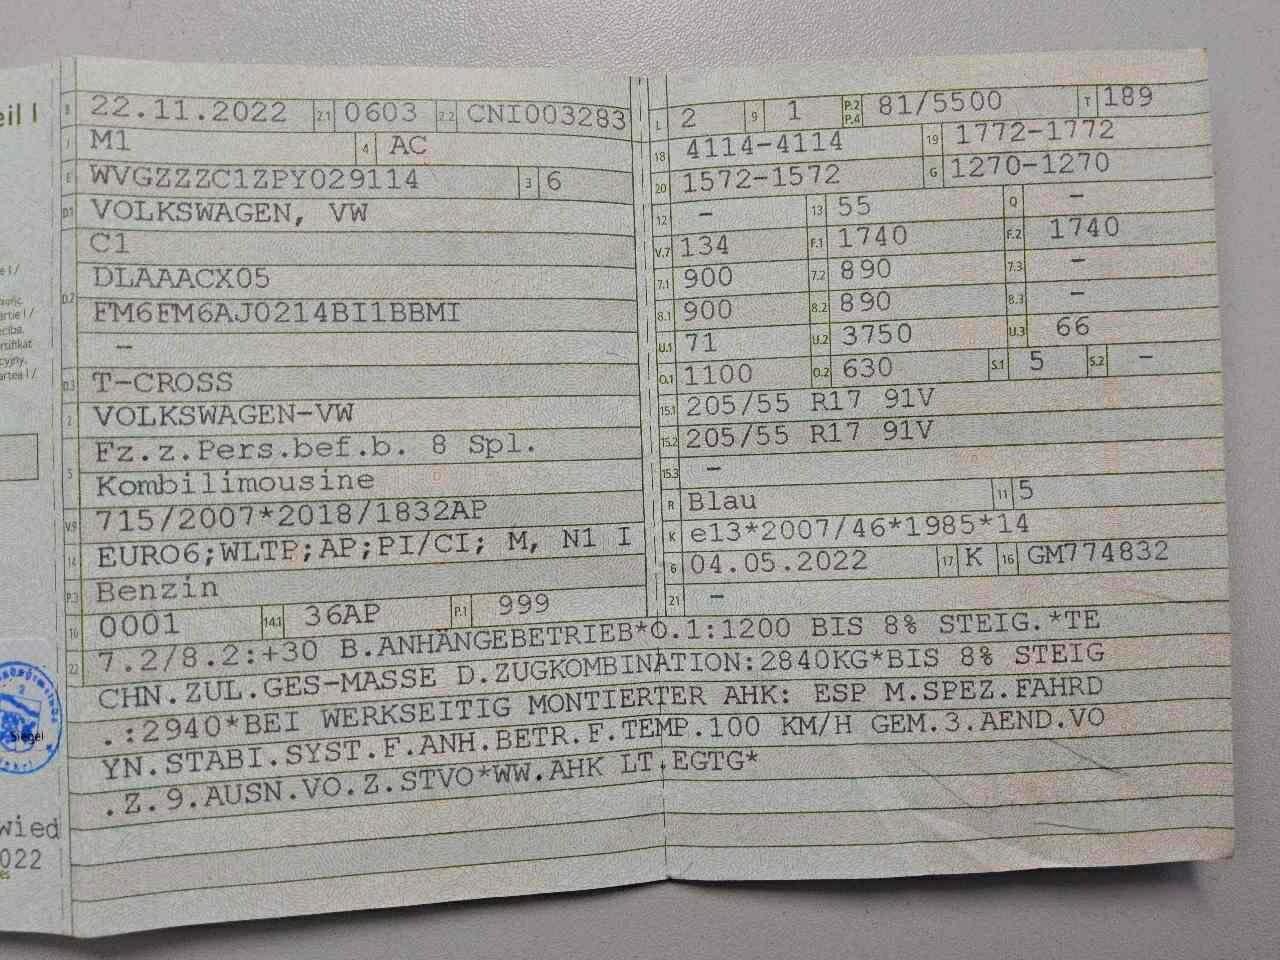 eil I
B 22.11.2022 2.1 0603 2.2 CNI003283
J M1 4 AC
E WVGZZZC1ZPY029114 3 6
D.1 VOLKSWAGEN, VW
C1
D.2 DLAAACX05
FM6FM6AJ0214BI1BBMI
–
D.3 T-CROSS
2 VOLKSWAGEN-VW
5 Fz.z.Pers.bef.b. 8 Spl.
Kombilimousine
V.9 715/2007*2018/1832AP
14 EURO6;WLTP;AP;PI/CI; M, N1 I
P.3 Benzin
10 0001 14.1 36AP P.1 999
L 2 9 1 P.2 P.4 81/5500 T 189
18 4114-4114 19 1772-1772
20 1572-1572 G 1270-1270
12 – 13 55 Q –
V.7 134 F.1 1740 F.2 1740
7.1 900 7.2 890 7.3 –
8.1 900 8.2 890 8.3 –
U.1 71 U.2 3750 U.3 66
O.1 1100 O.2 630 S.1 5 S.2 –
15.1 205/55 R17 91V
15.2 205/55 R17 91V
15.3 –
R Blau 11 5
K e13*2007/46*1985*14
6 04.05.2022 17 K 16 GM774832
21 –
22 7.2/8.2:+30 B.ANHÄNGEBETRIEB*O.1:1200 BIS 8% STEIG.*TE
CHN.ZUL.GES-MASSE D.ZUGKOMBINATION:2840KG*BIS 8% STEIG
.:2940*BEI WERKSEITIG MONTIERTER AHK: ESP M.SPEZ.FAHRD
YN.STABI.SYST.F.ANH.BETR.F.TEMP.100 KM/H GEM.3.AEND.VO
.Z.9.AUSN.VO.Z.STVO*WW.AHK LT.EGTG*
Siegel
wied
022